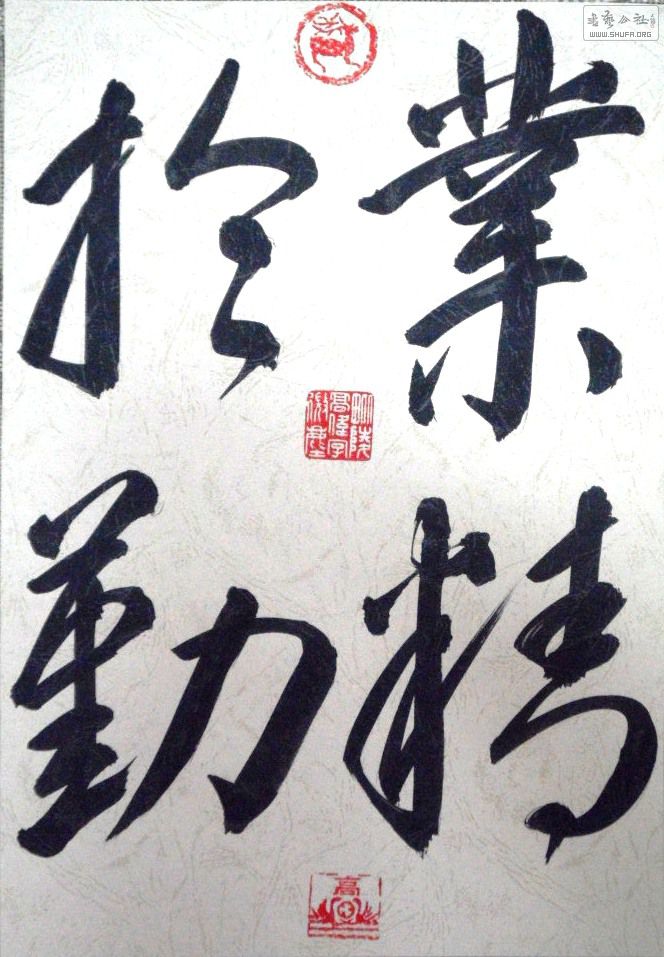 業精
於勤
高
書艺公社
WWW.SHUFA.ORG